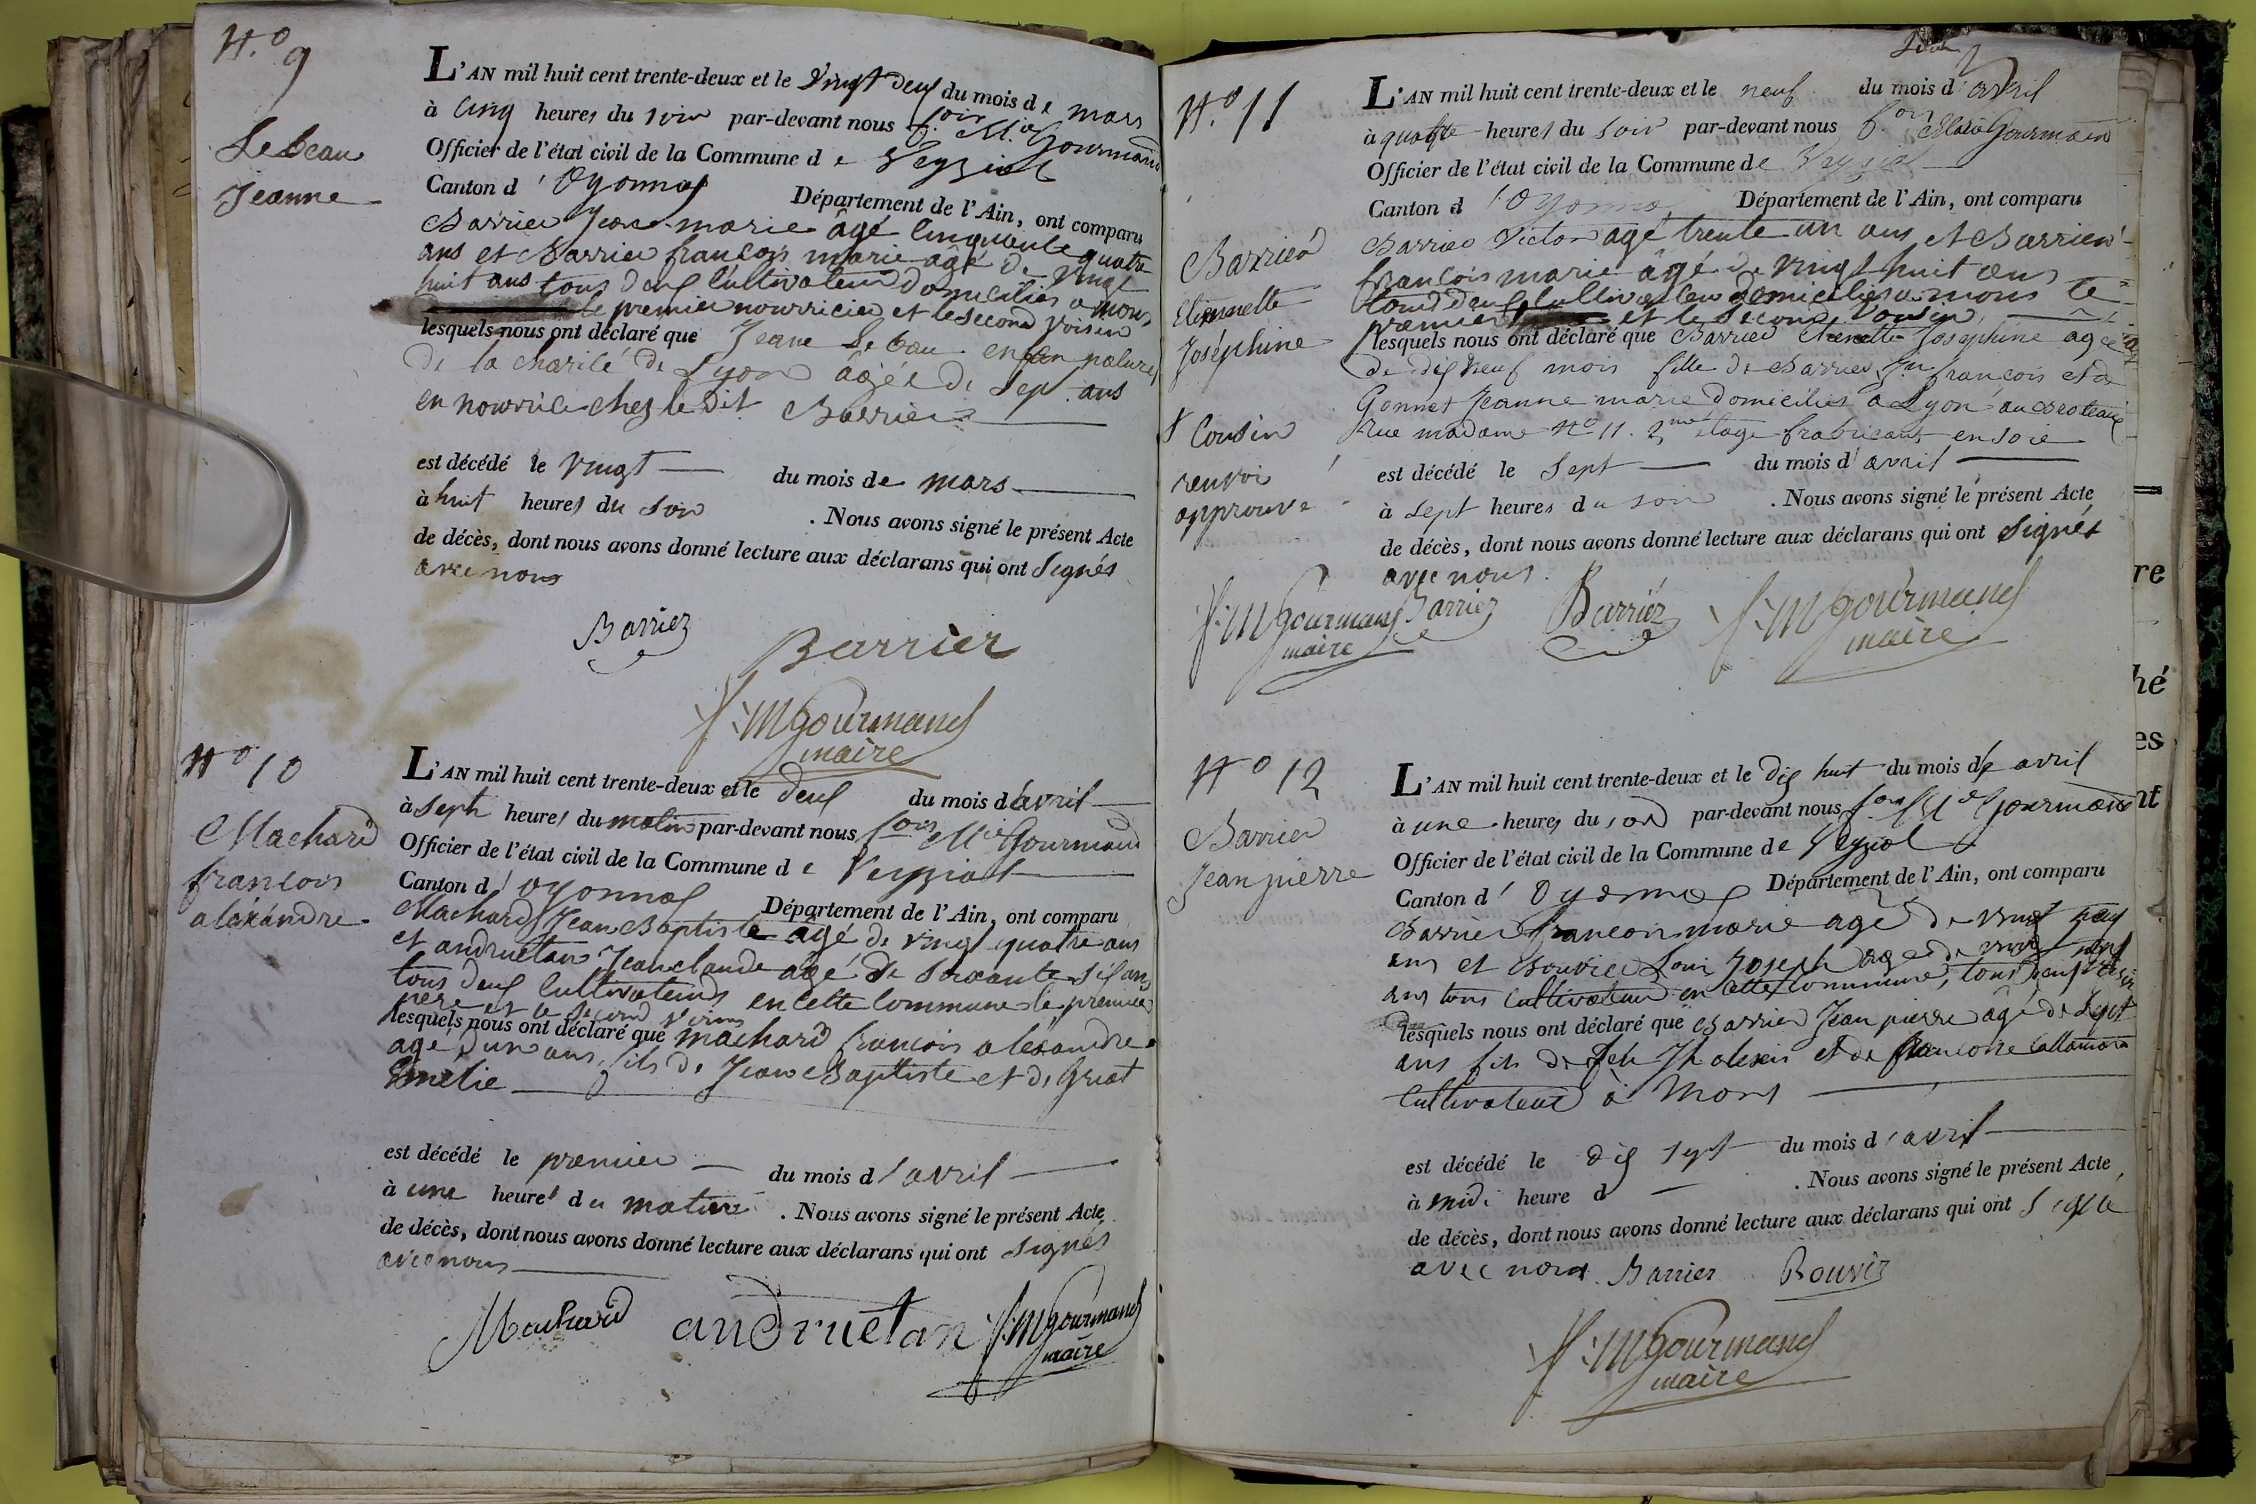 N.o 9
Lebeau
Jeanne
L'AN mil huit cent trente-deux et le vingt deux du mois de mars
à cinq heures du soir par-devant nous f.ois M.ie Gourmand
Officier de l'état civil de la Commune de Veyziat
Canton d'Oyonnax Département de l'Ain, ont comparu
Barrier Jean marie âgé cinquente quatre
ans et Barrier françois marie âgé de vingt
huit ans tous deux cultivateurs domiciliés a mons
le premier nourricier et le second voisin
lesquels nous ont déclaré que Jeane Lebeau enfan naturel
de la charité de Lyon âgée de sept ans
en nourrice chez le dit Barrier
est décédé le vingt du mois de mars
à huit heures du soir . Nous avons signé le présent Acte
de décès, dont nous avons donné lecture aux déclarans qui ont signés
avec nous
Barriez
Barrier
f. M gourmand
maire
N.o 10
Machard
françois
alexandre
L'AN mil huit cent trente-deux et le deux du mois d'avril
à sept heures du matin par-devant nous f.ois M.ie Gourmand
Officier de l'état civil de la Commune de Veyziat
Canton d'oyonnax Département de l'Ain, ont comparu
Machard Jean Baptiste âgé de vingt quatre ans
et andruetan Jean claude âgé de soixante six ans
tous deux cultivateurs en cette commune le premier
père et le second voisin
lesquels nous ont déclaré que machard francois alexandre
age d'un ans, fils de Jean Baptiste et de
Emelie
est décédé le premier du mois d'avril
à une heures du matin . Nous avons signé le présent Acte
de décès, dont nous avons donné lecture aux déclarans qui ont signés
avec nous
Machard andruetan f. M gourmand
maire
N.o 11
Barrier
Etiennette
Joséphine
† Cousin
renvoi
approuvé
L'AN mil huit cent trente-deux et le neuf du mois d'avril
à quatre heures du soir par-devant nous f.ois Marie Gourmand
Officier de l'état civil de la Commune de Veyziat
Canton d'Oyonnax Département de l'Ain, ont comparu
Barrier Victor agé trente un ans et Barrier
françois marie âgé de vingt huit ans
tous deux cultivateur domiciliés a mons le
premier et le second Cousin
lesquels nous ont déclaré que Barrier Etiennette Josephine agée
de dix neuf mois fille de Barrier Jn françois et de
Gonnet Jeanne marie domiciliés a Lyon au Broteaux
Rue madame No 11. 2me étage fabricant en soie
est décédé le sept du mois d'avril
à sept heures du soir . Nous avons signé le présent Acte
de décès, dont nous avons donné lecture aux déclarans qui ont signés
avec nous.
f. M gourmand Barriez Barriéz f. M gourmand
maire maire
N.o 12
Barrier
Jean pierre
L'AN mil huit cent trente-deux et le dix huit du mois de avril
à une heures du soir par-devant nous f.ois M.ie Gourmand
Officier de l'état civil de la Commune de Veyziat
Canton d'Oyonnax Département de l'Ain, ont comparu
Barrier francois marie agé de vingt
ans et Bouvier Joseph age de vingt
ans tous cultivateur en cette commune, tous deux
lesquels nous ont déclaré que Barrier Jean pierre âgé de Sept
ans fils de feu Jh alexis et de francoise
Cultivateur à Mons
est décédé le dix sept du mois d'avril
à midi heure d . Nous avons signé le présent Acte
de décès, dont nous avons donné lecture aux déclarans qui ont signé
avec nous. Barrier Bouvier
f. M gourmand
maire
re
hé
es
nt